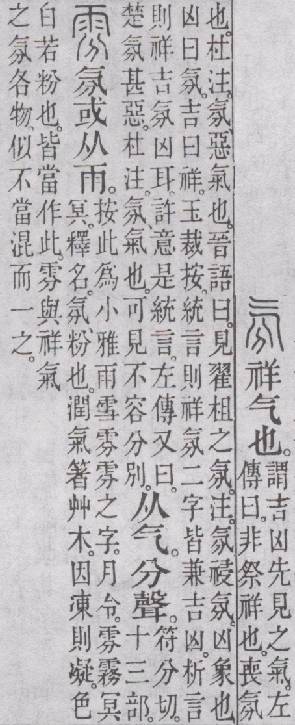 氛祥气也。
謂吉凶先見之氣。左
傳曰。非祭祥也。喪氛
也。杜注。氛惡氣也。晉語曰。見翟柤之氛。注。氛祲氛。凶象也
凶曰氛。吉曰祥。玉裁按。統言則祥氛二字皆兼吉凶。析言
則祥吉氛凶耳。許意是統言。左傳又曰。
楚氛甚惡。杜注。氛、氣也。可見不容分別。
从气。分聲。
符分切
十三部。
雰氛或从雨。
按此爲小雅雨雪雰雰之字。月令。雰霧冥
冥。釋名。氛粉也。潤氣箸艸木。因凍則凝。色
白若粉也。皆當作此。雰與祥氣
之氛各物。似不當混而一之。